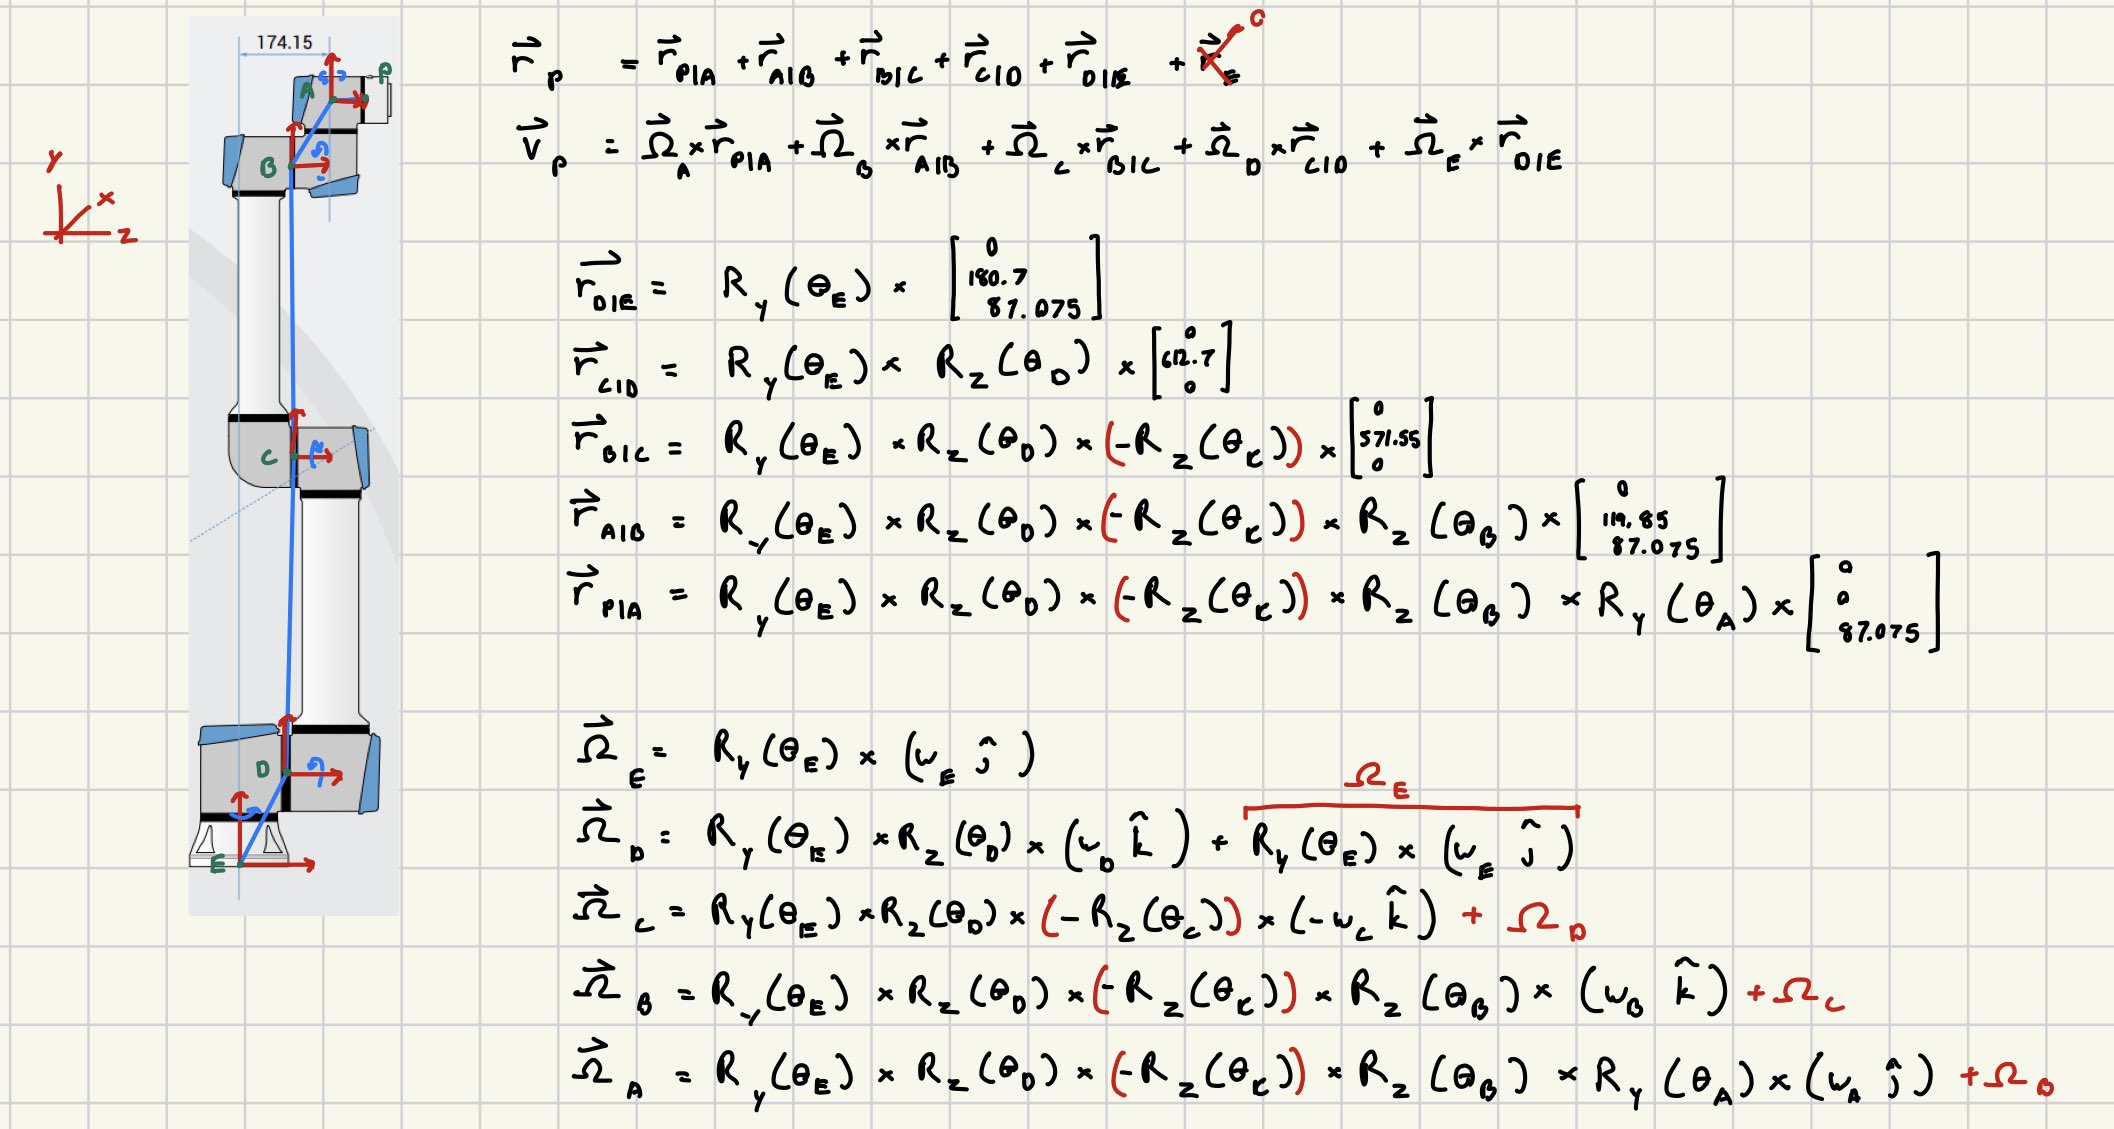 174.15
P
A
B
C
D
E
y
x
z
r⃗_P = r⃗_P|A + r⃗_A|B + r⃗_B|C + r⃗_C|D + r⃗_D|E + r⃗_E 0
v⃗_P = Ω⃗_A × r⃗_P|A + Ω⃗_B × r⃗_A|B + Ω⃗_C × r⃗_B|C + Ω⃗_D × r⃗_C|D + Ω⃗_E × r⃗_D|E
r⃗_D|E = R_y (θ_E) × [0 180.7 87.075]
r⃗_C|D = R_y (θ_E) × R_z (θ_D) × [0 612.7 0]
r⃗_B|C = R_y (θ_E) × R_z (θ_D) × (-R_z (θ_C)) × [0 571.55 0]
r⃗_A|B = R_y (θ_E) × R_z (θ_D) × (-R_z (θ_C)) × R_z (θ_B) × [0 119.85 87.075]
r⃗_P|A = R_y (θ_E) × R_z (θ_D) × (-R_z (θ_C)) × R_z (θ_B) × R_y (θ_A) × [0 0 87.075]
Ω⃗_E = R_y (θ_E) × (w_E ĵ)
Ω_E
Ω⃗_D = R_y (θ_E) × R_z (θ_D) × (w_D k̂) + R_y (θ_E) × (w_E ĵ)
Ω⃗_C = R_y (θ_E) × R_z (θ_D) × (-R_z (θ_C)) × (-w_C k̂) + Ω_D
Ω⃗_B = R_y (θ_E) × R_z (θ_D) × (-R_z (θ_C)) × R_z (θ_B) × (w_B k̂) + Ω_C
Ω⃗_A = R_y (θ_E) × R_z (θ_D) × (-R_z (θ_C)) × R_z (θ_B) × R_y (θ_A) × (w_A ĵ) + Ω_B